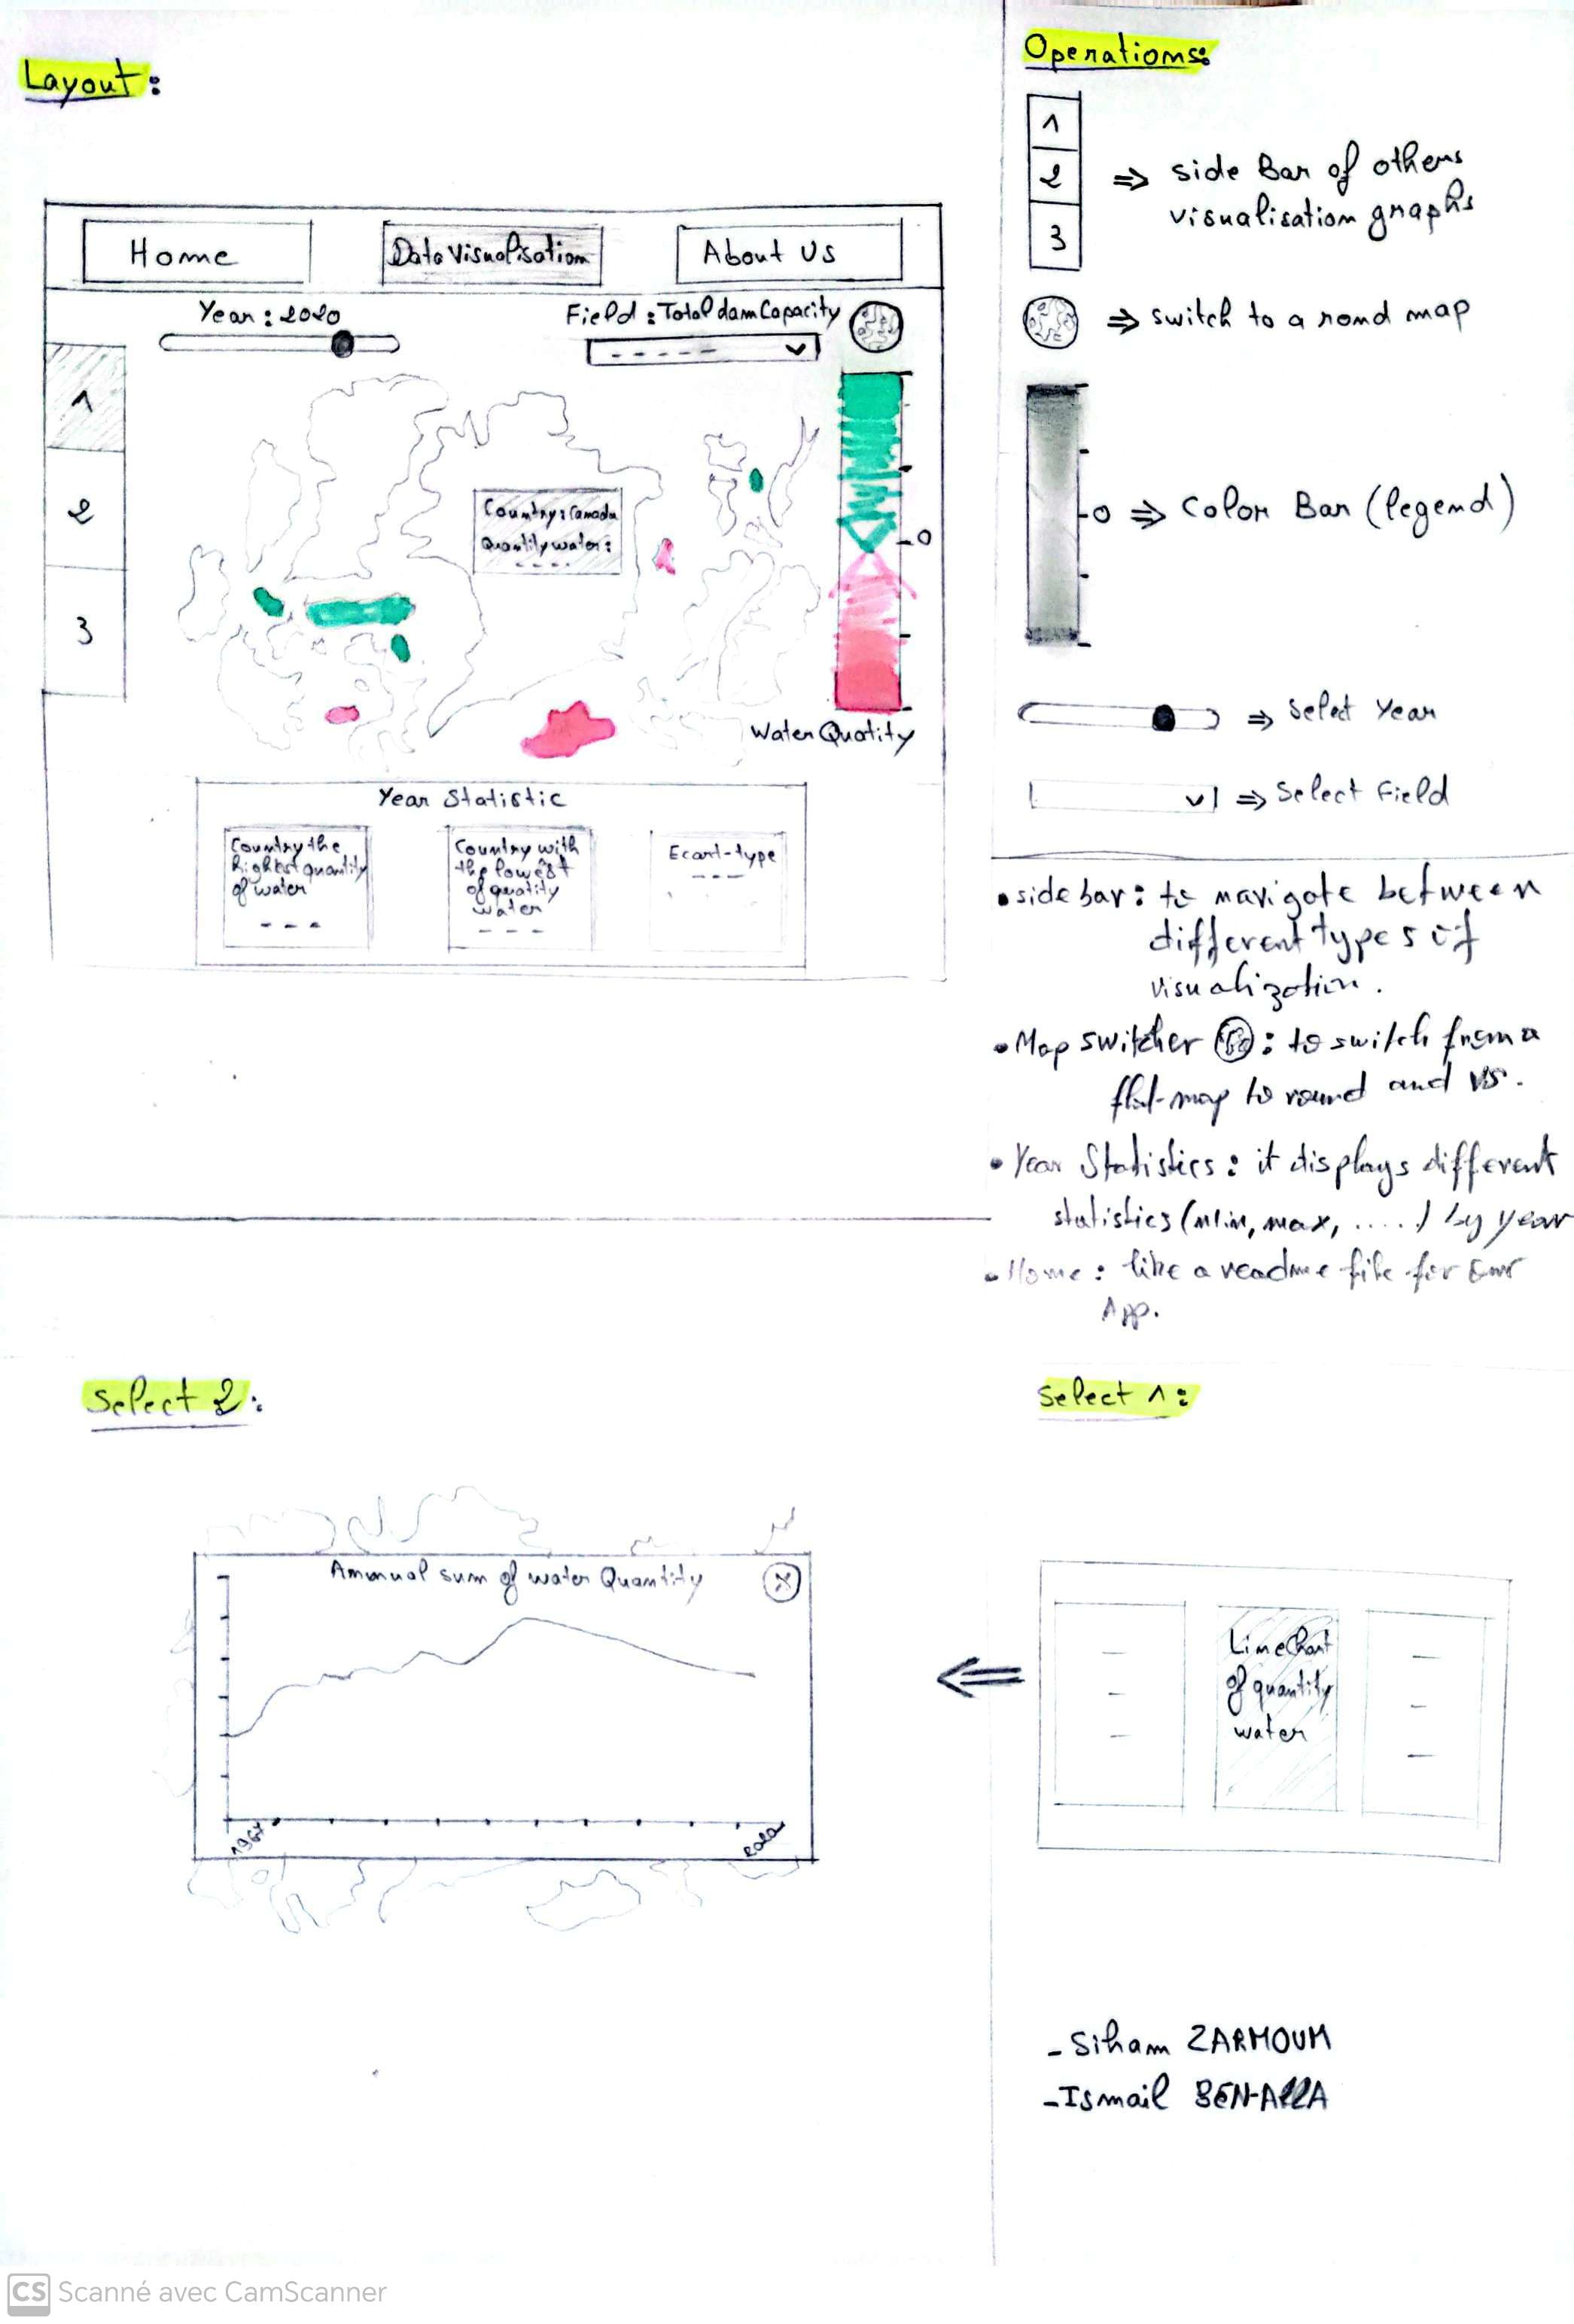 Layout:
Home
Data Visualisation
About Us
Year : 2020
Field : Total dam Capacity
- - - - -
1
2
3
Country : Canada
Quantity water :
- - - -
0
Water Quatity
Year Statistic
Country the
highest quantity
of water
- - -
Country with
the lowest
of quatity
water
- - - -
Ecart-type
- - -
Operations:
1
2
3
⇒ side Bar of others
visualisation graphs
⇒ switch to a rond map
0 ⇒ Color Bar (legend)
⇒ Select Year
⇒ Select Field
• side bar : to navigate between
different types of
visualization.
• Map switcher : to switch from a
flat-map to round and vs.
• Year Statistics : it displays different
statistics (min, max, .....) by year
• Home : like a readme file for our
App.
Select 2 :
Annual sum of water Quantity
X
1967
Select 1 :
Line Chart
of quantity
water
- Siham ZARMOUM
- Ismail BEN-AllA
CS Scanné avec CamScanner